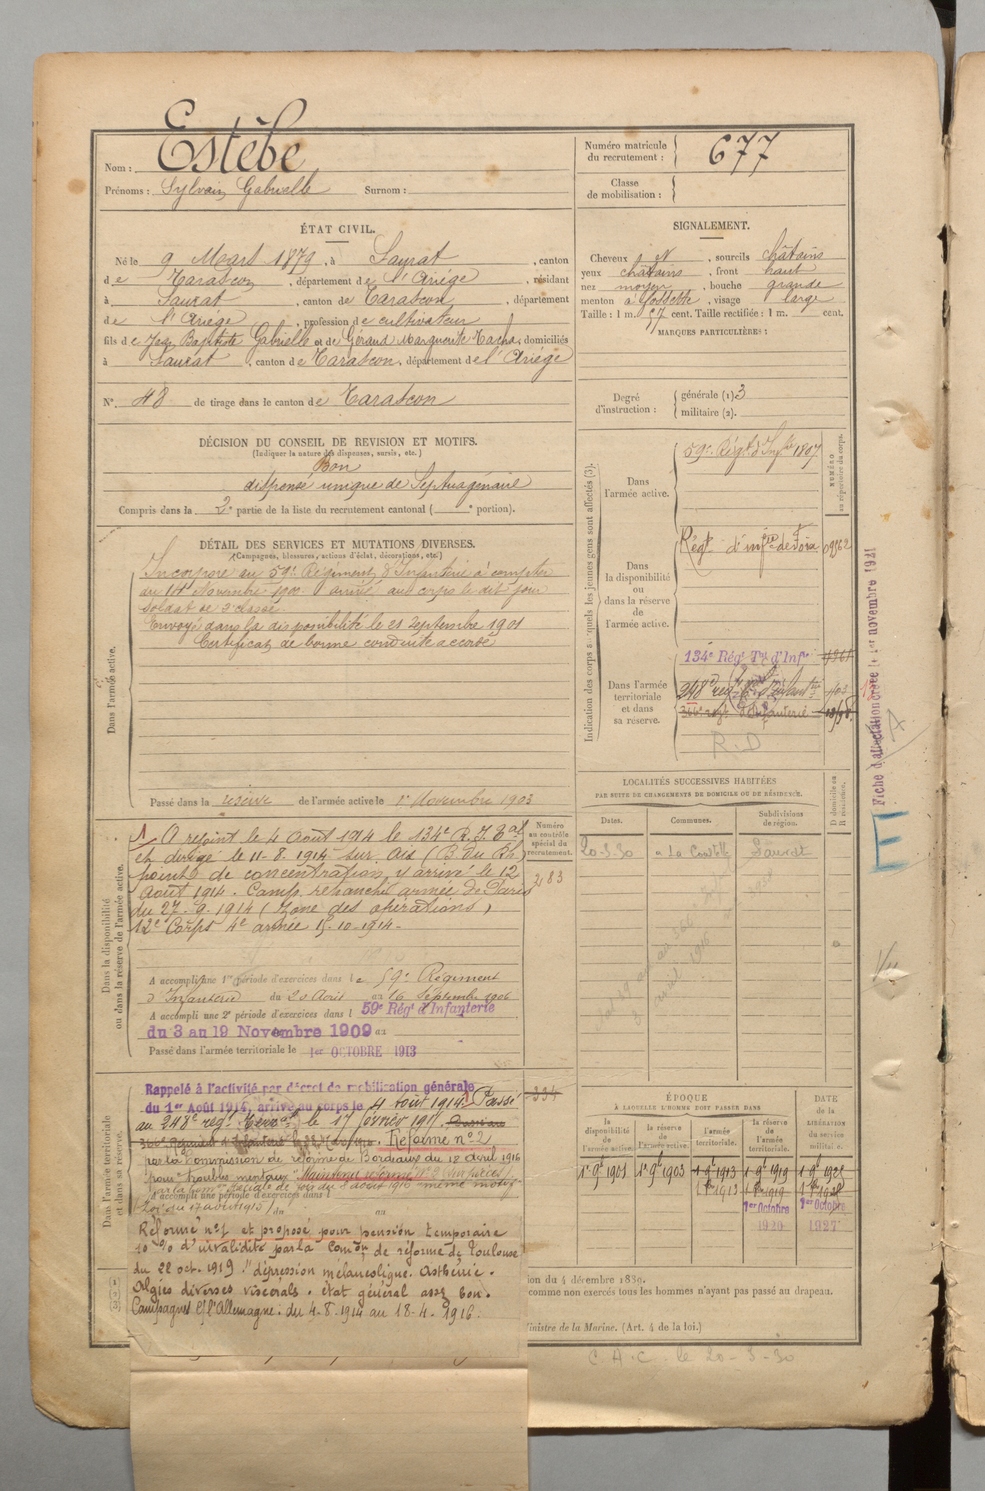 Nom : Estèbe
Prénoms : Sylvain Gabrielle Surnom :
Numéro matricule
du recrutement : 677
Classe
de mobilisation :
ÉTAT CIVIL.
Né le 9 Mars 1879, à Saurat, canton
de Tarascon, département de l'Ariége, résidant
à Saurat, canton de Tarascon, département
de l'Ariége, profession de cultivateur
fils de Jean Baptiste Gabrielle et de Géraud Marguerite domiciliés
à Saurat, canton de Tarascon, département de l'Ariége
N° 48 de tirage dans le canton de Tarascon
SIGNALEMENT.
Cheveux N, sourcils châtains
yeux châtains, front haut
nez moyen, bouche grande
menton à fossette, visage large
Taille : 1 m. 57 cent. Taille rectifiée : 1 m. cent.
MARQUES PARTICULIÈRES :
Degré
d'instruction :
générale (1) 3
militaire (2).
DÉCISION DU CONSEIL DE REVISION ET MOTIFS.
(Indiquer la nature des dispenses, sursis, etc.)
Bon
dispensé unique de Septuagénaire
Compris dans la 2e partie de la liste du recrutement cantonal ( e portion).
DÉTAIL DES SERVICES ET MUTATIONS DIVERSES.
(Campagnes, blessures, actions d'éclat, décorations, etc.)
Dans l'armée active.
Incorporé au 59e Régiment d'Infanterie à compter
du 14 Novembre 1900 arrivé au corps le dit jour
soldat de 2e classe
Envoyé dans la disponibilité le 21 Septembre 1901
Certificat de bonne conduite accordé
Passé dans la réserve de l'armée active le 1er Novembre 1903
Indication des corps auxquels les jeunes gens sont affectés (3).
NUMÉRO
au répertoire du corps.
Dans
l'armée active.
59e Régt d'Infie 1807
Dans
la disponibilité
ou
dans la réserve
de
l'armée active.
Régt d'infie de Foix
Dans l'armée
territoriale
et dans
sa réserve.
134e Régt Tal d'Infie
R.D
Fiche d'affectation créée le 1er novembre 1921
LOCALITÉS SUCCESSIVES HABITÉES
PAR SUITE DE CHANGEMENTS DE DOMICILE OU DE RÉSIDENCE.
D domicile ou
R résidence.
Dates. Communes. Subdivisions
de région.
20-3-30 Saurat
Dans la disponibilité
ou dans la réserve de l'armée active.
Numéro
au contrôle
spécial du
recrutement.
283
A rejoint le 4 Août 1914 le 134e R.I.Tal
et dirigé le 11-8-1914 sur Aix (B du Rh)
point de concentration, y arrivé le 12
Août 1914. Camp retranché armée de Paris
du 27-9-1914 (Zone des opérations)
12e Corps 4e armée 15-10-1914.
A accompli une 1re période d'exercices dans le 59e Régiment
d'Infanterie du 20 Août au 16 Septembre 1906
A accompli une 2e période d'exercices dans l 59e Régt d'Infanterie
du 3 au 19 Novembre 1909 au
Passé dans l'armée territoriale le 1er OCTOBRE 1913
Dans l'armée territoriale
et dans sa réserve.
334
Rappelé à l'activité par décret de mobilisation générale
du 1er Août 1914, arrivé au corps le 4 Août 1914. Passé
au 248e regt Terral le 17 février 191
Réformé n° 2
par la Commission de réforme de Bordeaux du 18 Avril 1916
pour "troubles mentaux" Maintenu réformé N° 2
même motif
A accompli une période d'exercices dans l
du au
Réformé n° 1 et proposé pour pension temporaire
10 % d'invalidité par la Comon de réforme de Toulouse
du 22 oct. 1919 : "dépression mélancolique. Asthénie.
Algies diverses viscérals. état général assez bon.
Campagnes C/ l'Allemagne : du 4-8-1914 au 18-4-1916.
ÉPOQUE
À LAQUELLE L'HOMME DOIT PASSER DANS
la
disponibilité
de
l'armée active.
la réserve
de
l'armée active.
l'armée
territoriale.
la réserve
de
l'armée
territoriale.
DATE
de la
LIBÉRATION
du service
militaire.
1er 9bre 1901 1er 9bre 1903 1er 9bre 1913 1er 9bre 1919
1er Octobre 1er Octobre
1920 1927
ion du 4 décembre 1889.
comme non exercés tous les hommes n'ayant pas passé au drapeau.
Ministre de la Marine. (Art. 4 de la loi.)
C.A.C. le 20-3-30